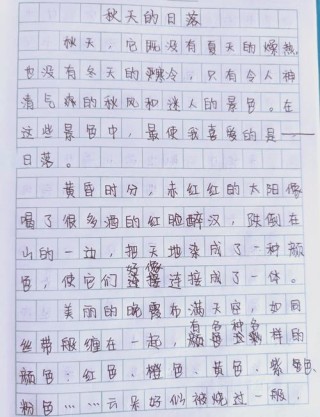 秋天的日落
秋天，它既没有夏天的燥热，
也没有冬天的寒冷，只有令人神
清气爽的秋风和迷人的景色。在
这些景色中，最使我喜爱的是——
日落。
黄昏时分，赤红红的太阳像
喝了很多酒的红脸醉汉，跌倒在
山的一边，把天地染成了一种颜
色，使它们好像连接成了一体。
美丽的晚霞布满天空，如同
丝带般缠在一起，有各种各样的
颜色：红色、橙色、黄色、紫色、
粉色……云朵好似被烧过一般，